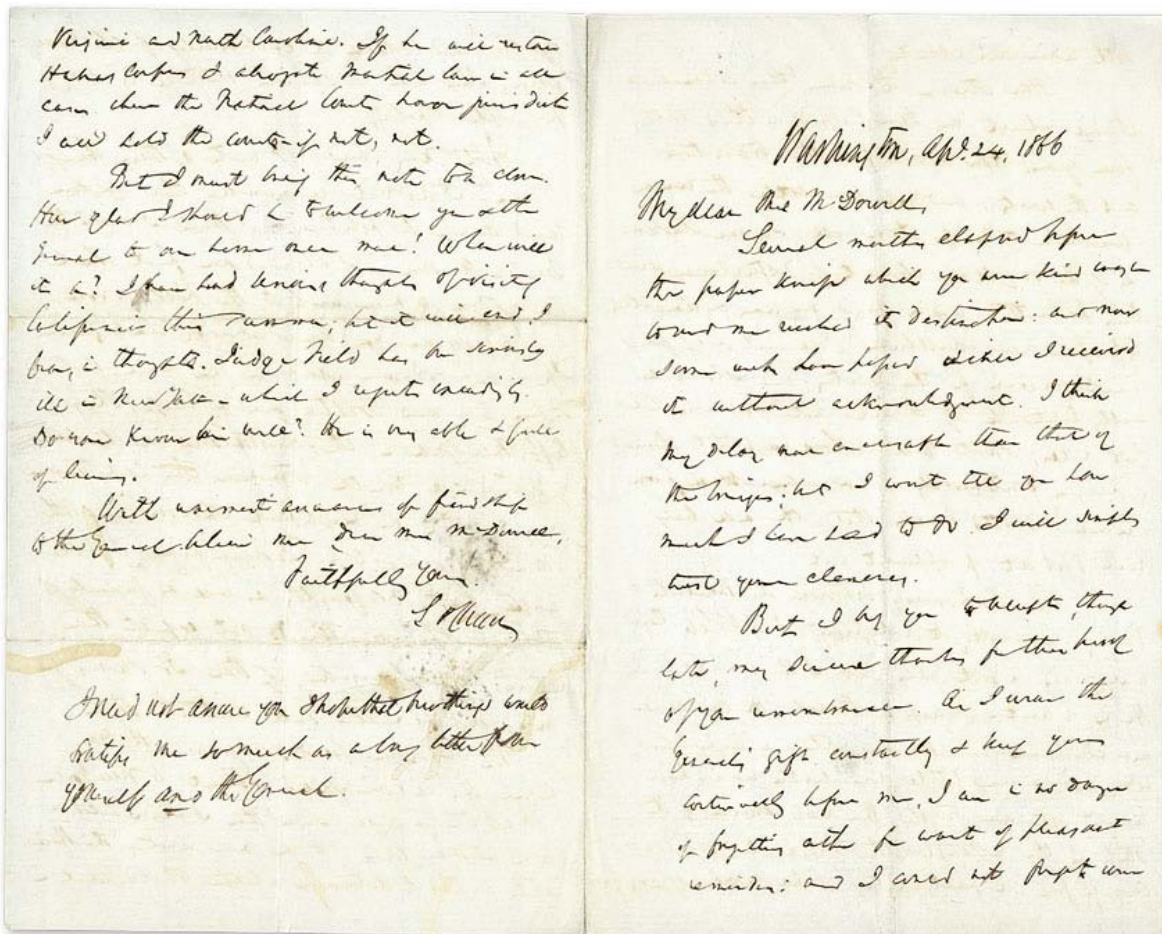 Virginia and North Carolina. If he will restore
Habeas Corpus & abrogate martial law in all
cases where the National Courts have jurisdict
I will hold the courts – if not, not.
But I must bring this note to a close.
How glad I should be to welcome you & the
General to our home once more! When will
it be? I have had serious thoughts of visiting
California this summer; but it will end, I
fear, in thoughts. Judge Field has been seriously
ill in New York – which I regret exceedingly.
Do you know him well? He is very able & full
of
With warmest assurances of friendship
to the General believe me dear Mrs McDowell,
Faithfully Yours
S P Chase
I need not assure you I hope that nothing would
gratify me so much as a long letter from
yourself and the General.
Washington, Apl. 24, 1866
My dear Mrs McDowell,
Several months elapsed before
the paper knife which you were kind enough
to send me reached its destination: and now
some weeks have lapsed since I received
it without acknowledgment. I think
my delay more excusable than that of
the but I wont tell you how
much I have had to do. I will simply
trust your clemency.
But I beg you to accept, though
late, my sincere thanks for this proof
of your remembrance. As I wear the
General's gift constantly & keep yours
continually before me, I am in no danger
of forgetting either for want of pleasant
reminders: and I could not forget were